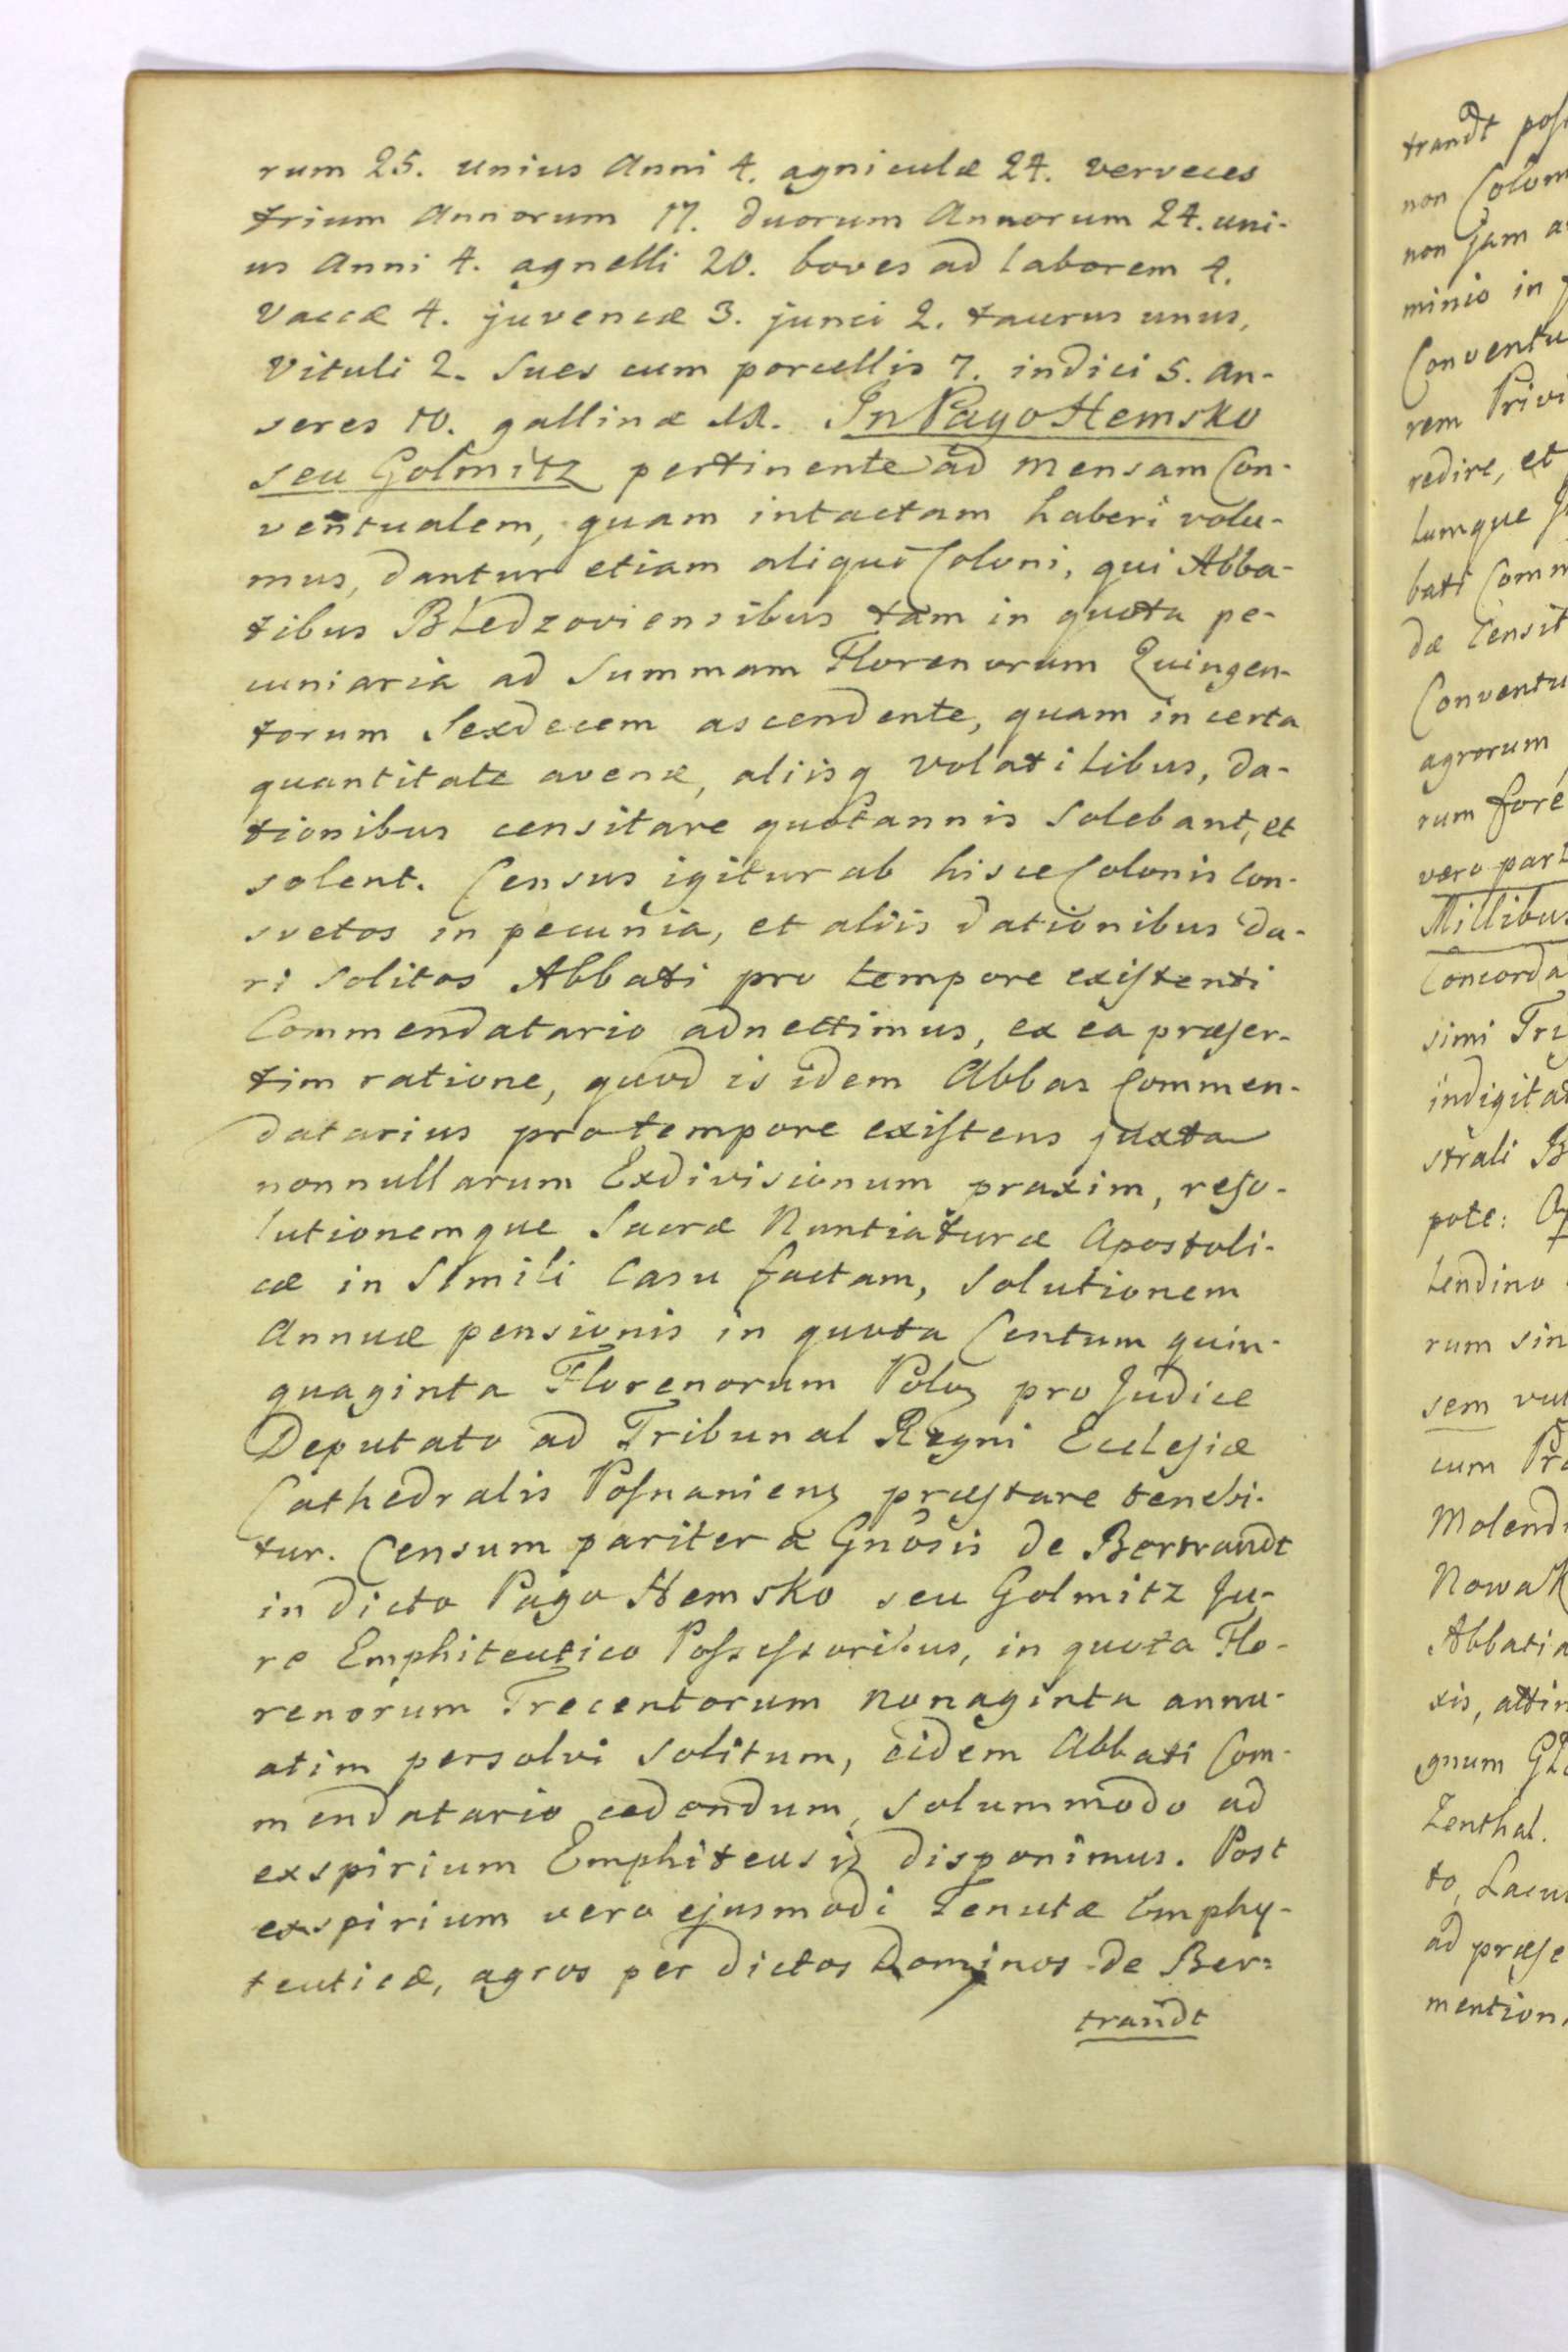 rum 25. unius Anni 4. agniculæ 24. verveces
trium Annorum 17. duorum Annorum 24. uni-
us Anni 4. agnelli 20. boves ad laborem 4.
Vaccæ 4. juvencæ 3. junci 2. taurus unus,
Vituli 2. Sues cum porcellis 7. indici 5. an-
seres 10. gallinæ In Pago Hemsko
seu Golmitz pertinente ad mensam Con-
ventualem, quam intactam haberi volu-
mus, dantur etiam aliqui Coloni, qui Abba-
tibus Bledzoviensibus tam in quota pe-
cuniaria ad Summam Florenorum Quingen-
torum Sexdecem ascendente, quam in certa
quantitate avenæ, aliisq volatilibus, da-
tionibus censitare quotannis Solebant, et
solent. Census igitur ab hisce Colonis Con-
svetos in pecunia, et aliis dationibus da-
ri Solitos Abbati pro tempore existenti
Commendatario adnectimus, ex ea præser-
tim ratione, quod is idem Abbas Commen-
datarius pro tempore existens juxta
nonnullarum Exdivisionum praxim, reso-
lutionemque Sacræ Nuntiaturæ Apostoli-
cæ in Simili Casu factam, Solutionem
Annuæ pensionis in quota Centum quin-
quaginta Florenorum Poloz pro Judice
Deputato ad Tribunal Regni Ecclesiæ
Cathedralis Posnanienz præstare tenebi-
tur. Censum pariter a Gnosis de Bertrandt
in dicto Pago Hemsko seu Golmitz Ju-
re Emphiteutico Possessoribus, in quota Flo-
renorum Trecentorum nonaginta annu-
atim persolvi Solitum, eidem Abbati Com-
mendatario cedendum, solummodo ad
exspirium Emphiteusis disponimus. Post
exspirium vero ejusmodi Tenutæ Emphy-
teuticæ, agros per dictos Dominos de Ber=
trandt
trandt
non Colon
non jam
minio in
Conventu
rem Privi
redire, et
tumque
bati Comm
dæ Censit
Conventu
agrorum
rum foré
vero
Millibus
Concorda
simi Tri
indigita
strali
pote:
tendino
rum sin
sem
cum
Molend
Nowak
Abbatia
xis, attin
gnum
Zenthal.
to, Lacu
ad præse
mention